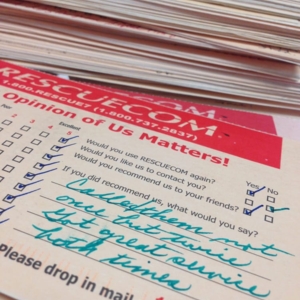 RESCUECOM
1.800.RESCUE7 (1.800.737.2837)
Opinion of Us Matters!
Excellent
Yes No
Would you use RESCUECOM again?
Would you like us to contact you?
Would you recommend us to your friends?
If you did recommend us, what would you say?
Called them not
once but twice
Got great service
both times
Please drop in mail